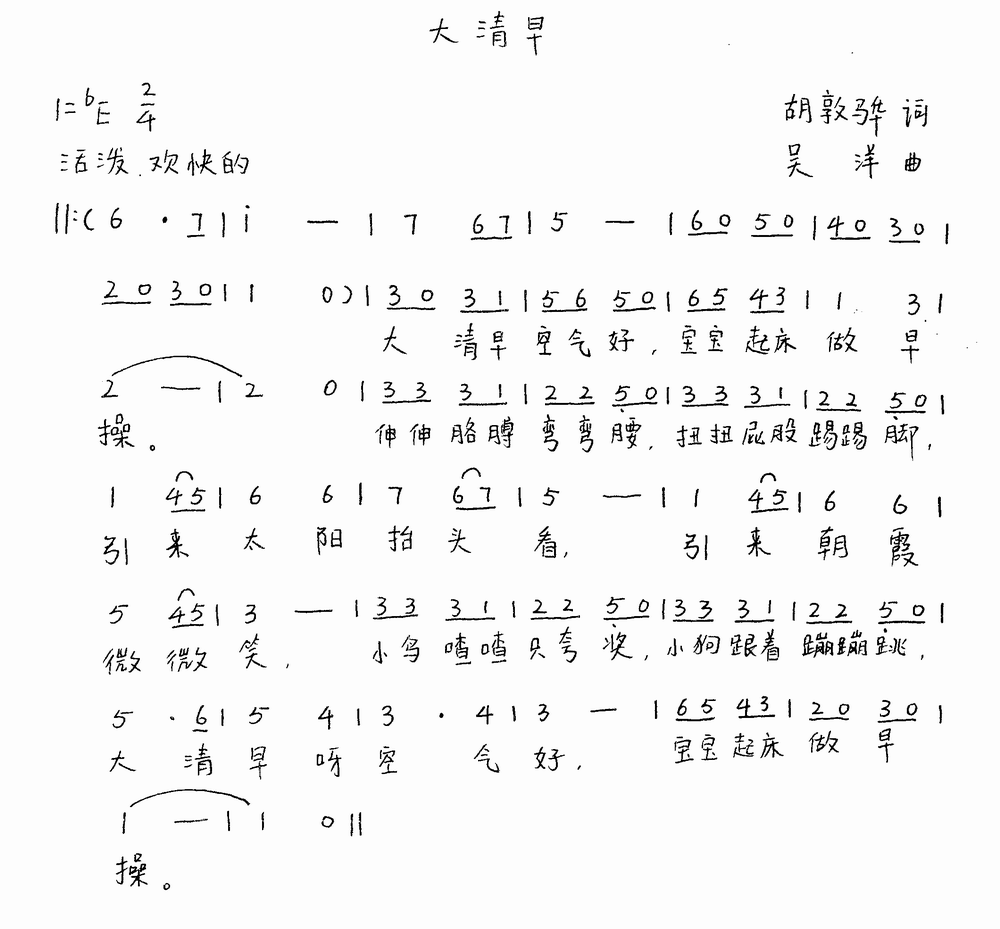 大清早
1=♭E 2/4
胡敦骅 词
活泼.欢快的
吴 洋 曲
‖:( 6 · 7 | i — | 7 67 | 5 — | 60 50 | 40 30 |
20 30 | 1 0) | 30 31 | 56 50 | 65 43 | 1 3 |
大 清早 空气 好，宝宝 起床 做 早
2 — | 2 0 | 33 31 | 22 50 | 33 31 | 22 50 |
操。 伸伸 胳膊 弯弯 腰，扭扭屁股 踢踢 脚，
1 45 | 6 6 | 7 67 | 5 — | 1 45 | 6 6 |
引 来 太 阳 抬 头 看， 引 来 朝 霞
5 45 | 3 — | 33 31 | 22 50 | 33 31 | 22 50 |
微 微 笑， 小鸟 喳喳 只夸 奖，小狗 跟着 蹦蹦 跳，
5 · 6 | 5 4 | 3 · 4 | 3 — | 65 43 | 20 30 |
大 清 早 呀 空 气 好， 宝宝 起床 做 早
1 — | 1 0 ‖
操。